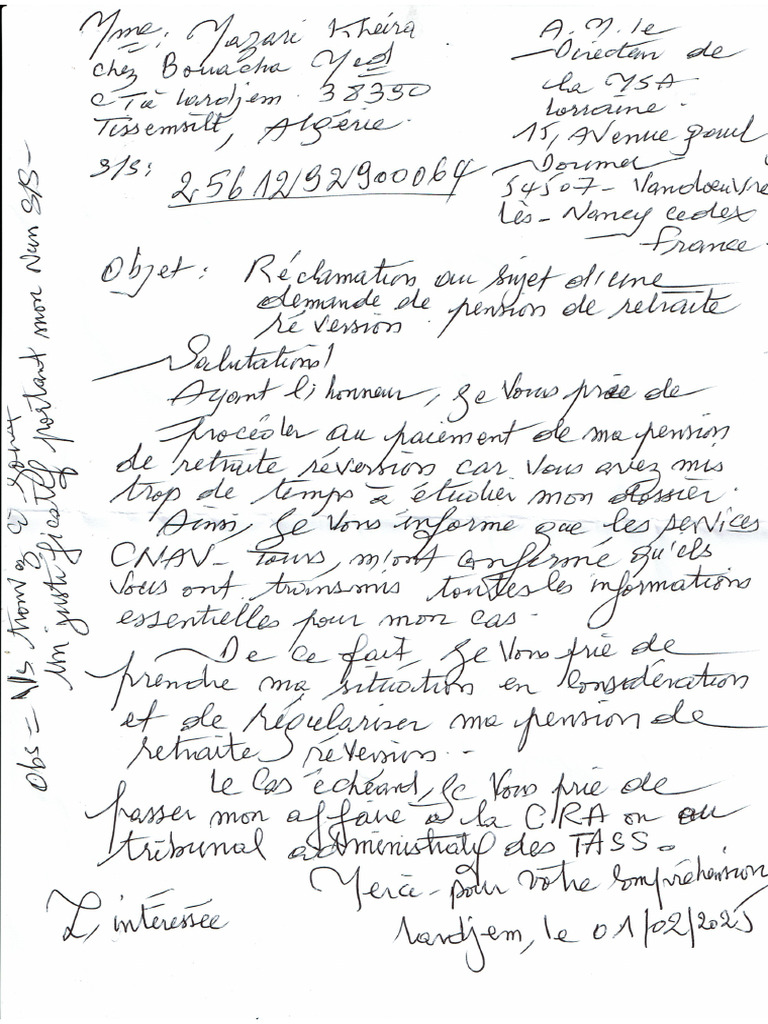 Mme: Mazari Kheira
chez Bouacha Med
CTà lardjem 38350
Tissemsilt, Algérie.
S/S: 2561292900064
A. M. le
Directeur de
la MSA
lorraine.
15, Avenue paul
Doumer
54507- Vandoeuvre
lès- Nancy cedex
France
Objet: Réclamation au sujet d'une
demande de pension de retraite
réversion.
Salutations!
Ayant l'honneur, je vous prie de
procéder au paiement de ma pension
de retraite réversion car vous avez mis
trop de temps à étudier mon dossier.
Ainsi, je vous informe que les services
CNAV- Tours, m'ont confirmé qu'ils
vous ont transmis toutes les informations
essentielles pour mon cas.
De ce fait, je vous prie de
prendre ma situation en considération
et de régulariser ma pension de
retraite réversion..
le cas échéand, je vous prie de
passer mon affaire à la CRA ou au
tribunal administratif des TASS.
Merci- pour votre compréhension
L'intéressée
lardjem, le 01/02/2025
Obs= V/s trouvez
un justificatif portant mon Num S/S-